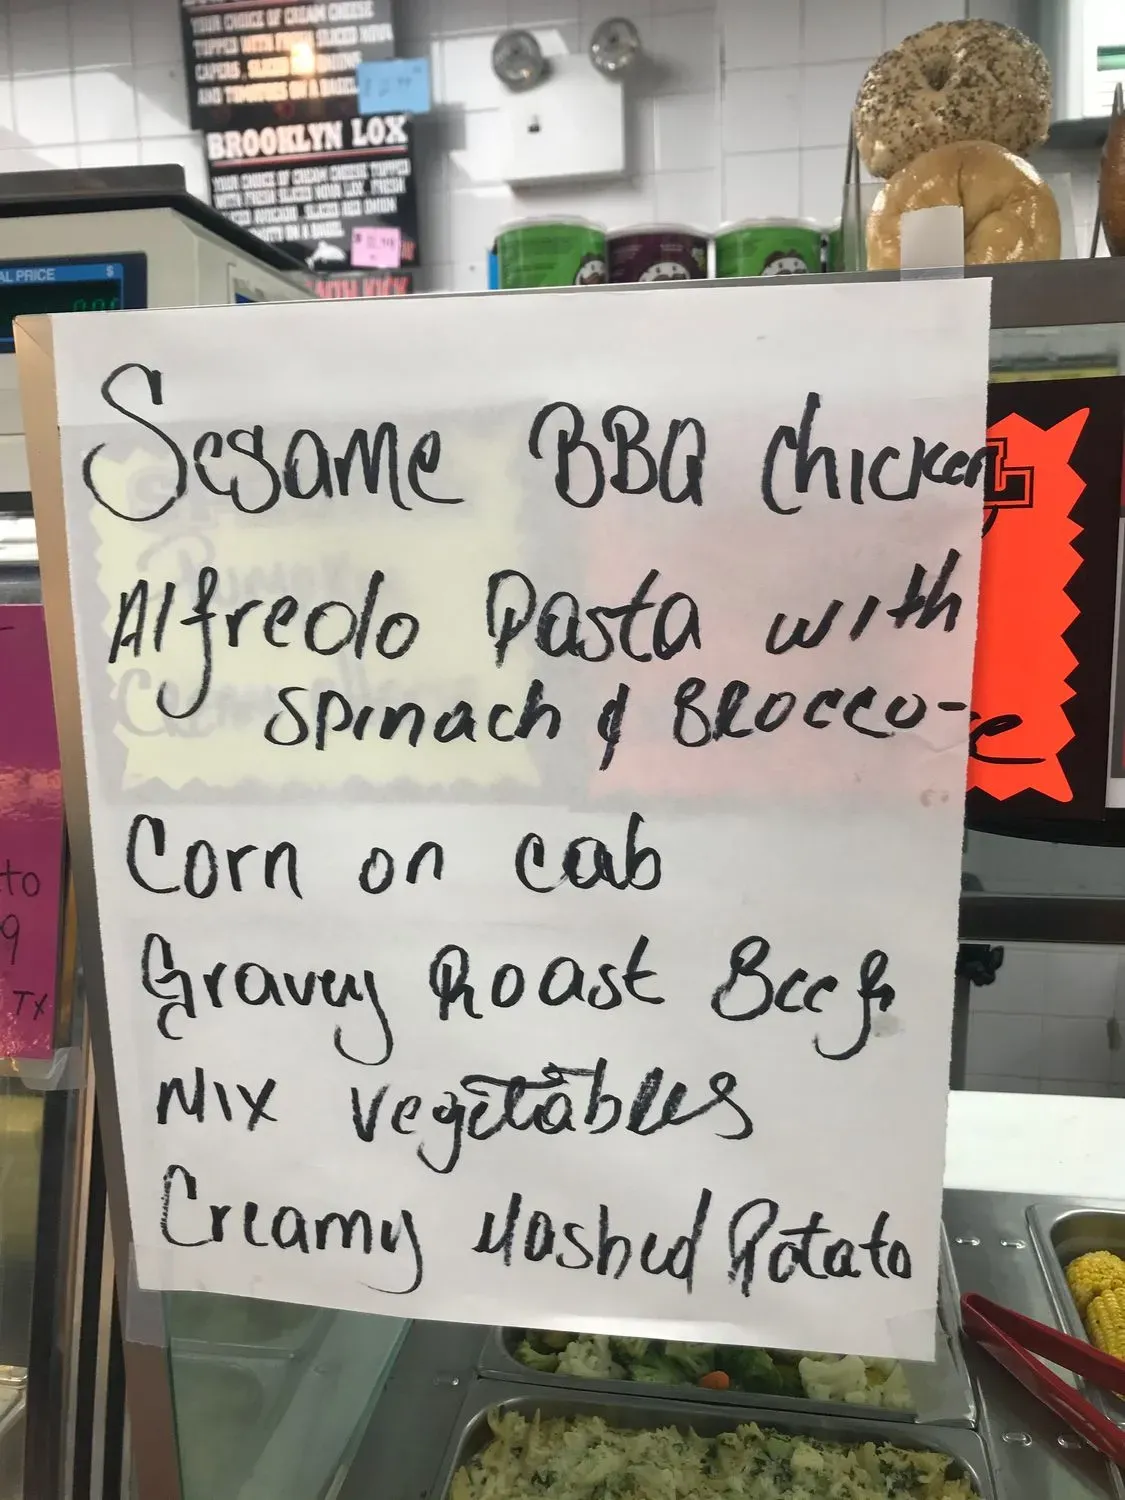 YOUR CHOICE OF CREAM CHEESE
TOPPED WITH FRESH SLICED NOVA
CAPERS, SLICED
AND TOMATOES ON A BAGEL
BROOKLYN LOX
YOUR CHOICE OF CREAM CHEESE TOPPED
WITH FRESH SLICED NOVA LOX, FRESH
SLICED AVOCADO, SLICED RED ONION
ON A BAGEL
AL PRICE $
Sesame BBQ Chicken
Alfredo Pasta with
Spinach & Brocco-
Corn on cab
Gravey Roast Beef
Mix vegetables
Creamy Mashed Potato
to
9
TX